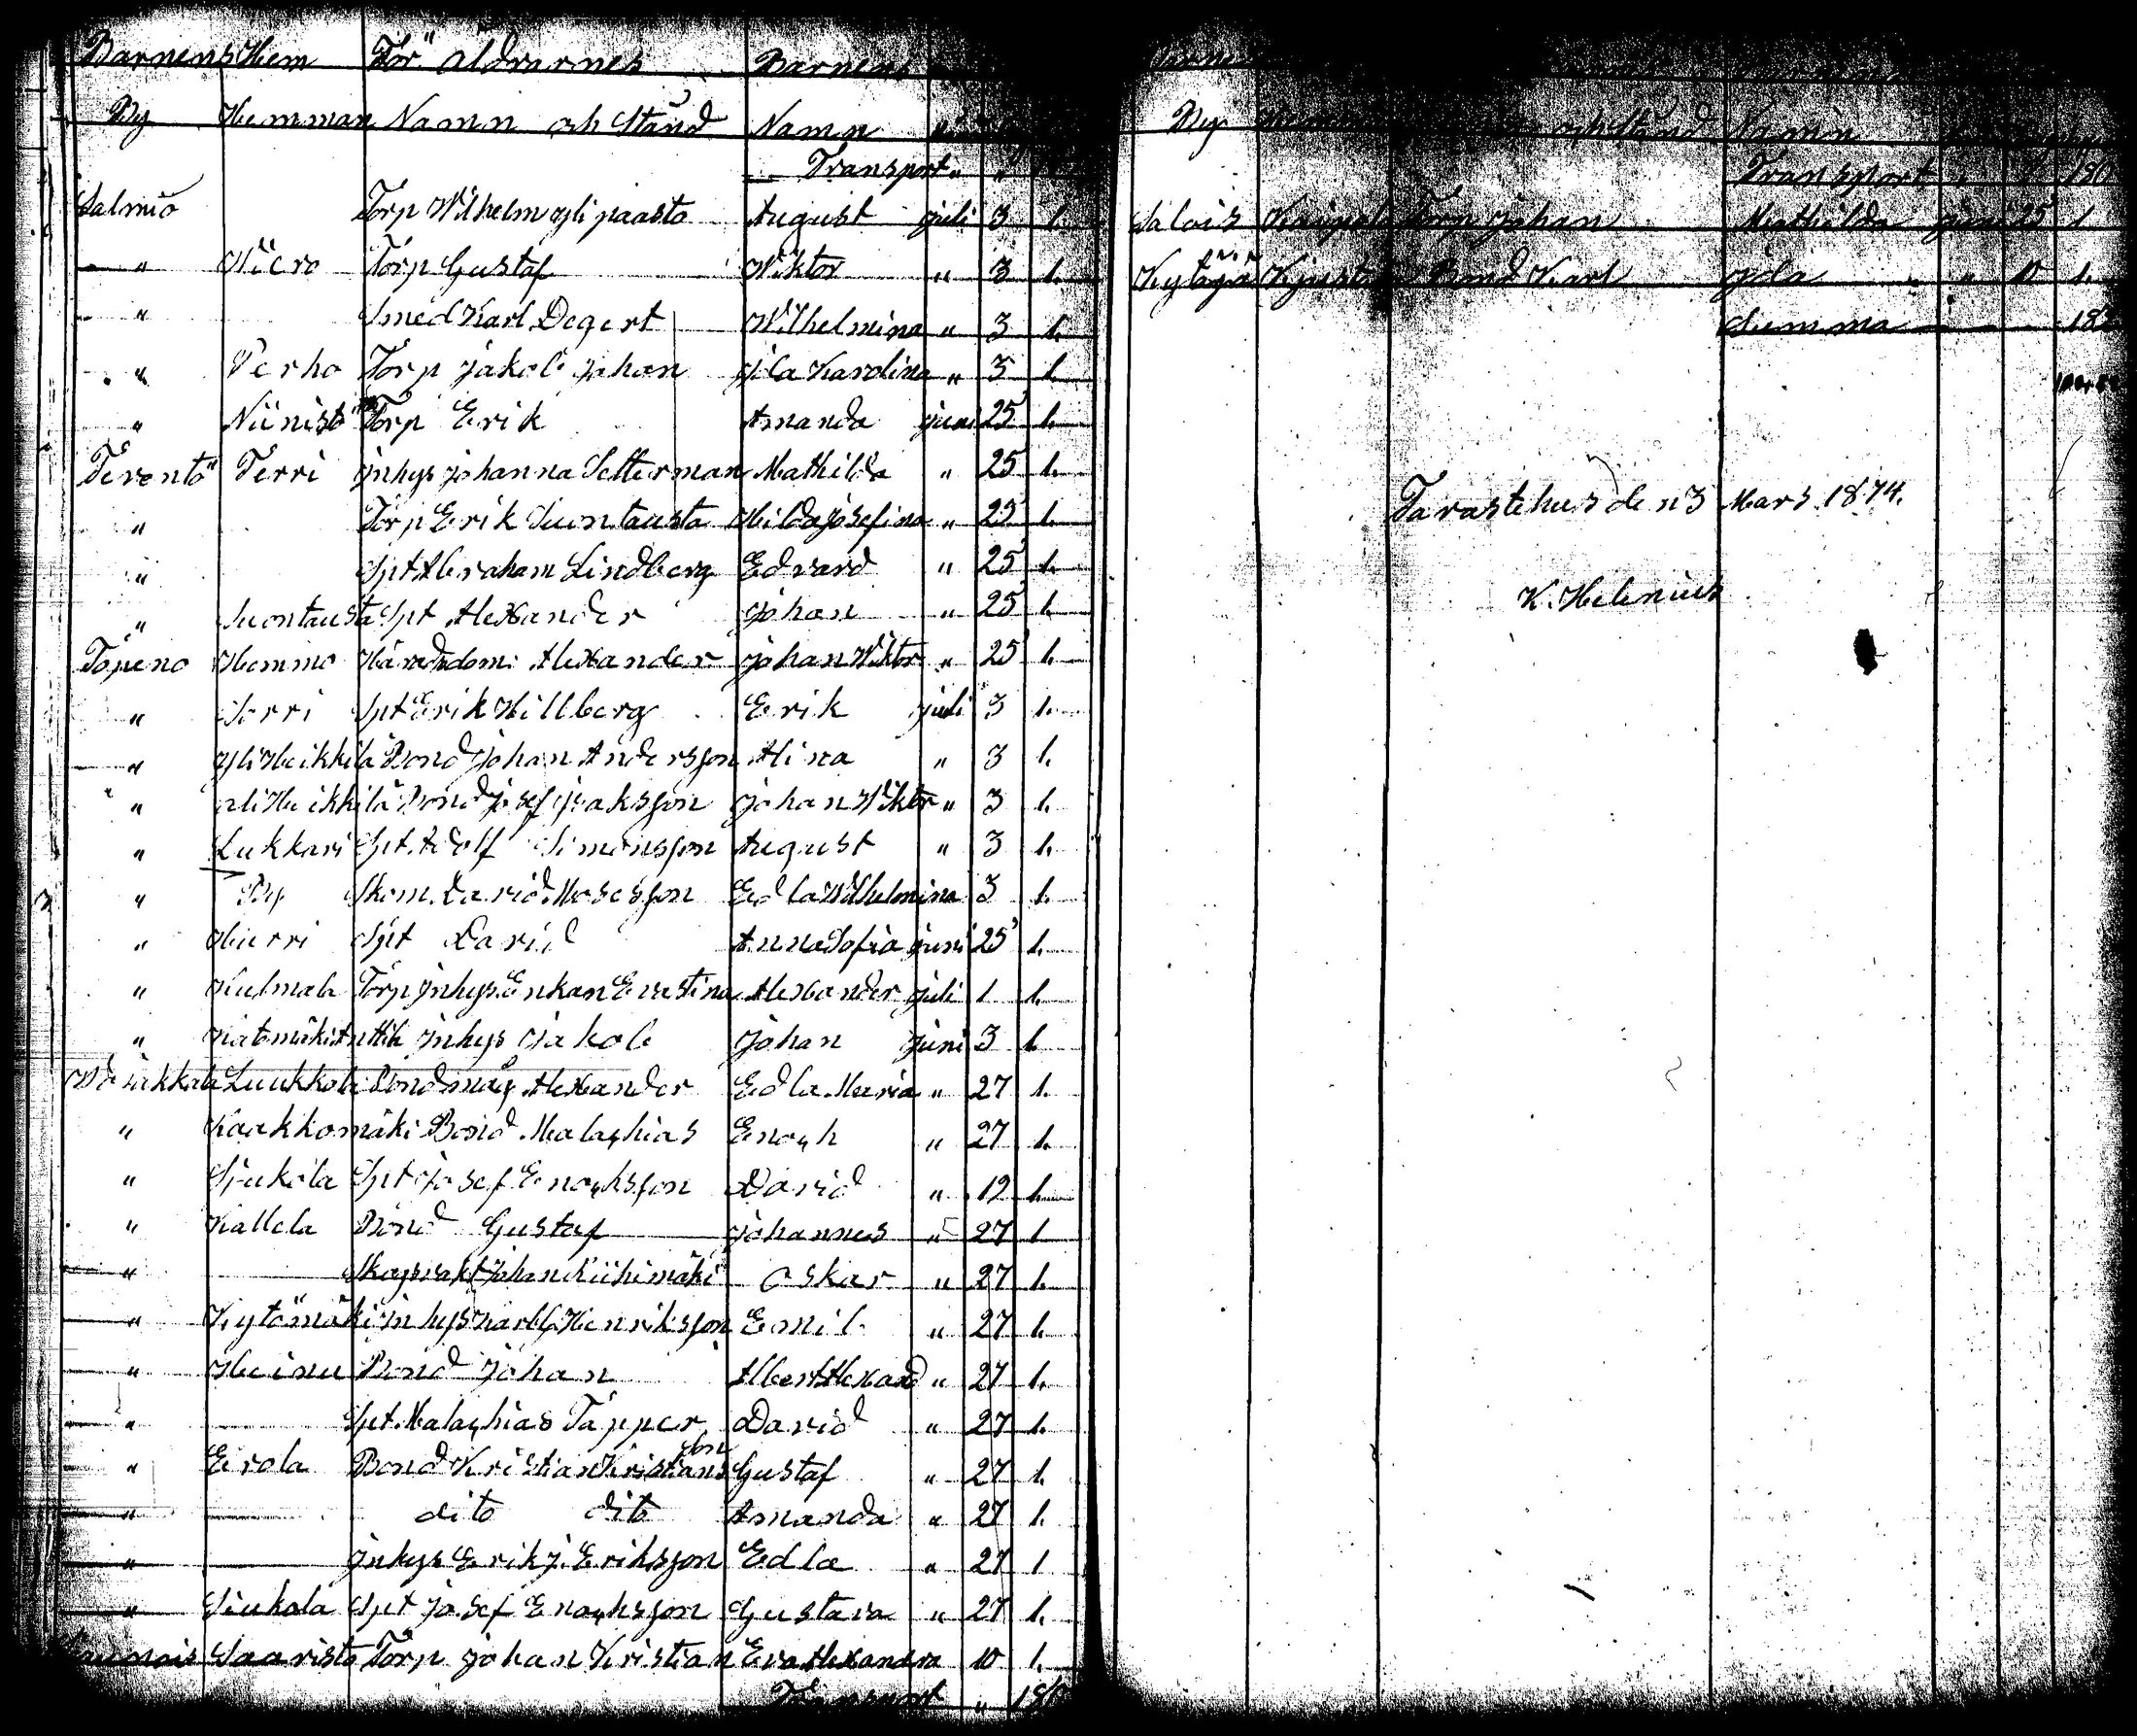 Barnens Hem För äldrarnes Barnens
By Hemman Namn och Stånd Namn
Transport "
Salmio Torp Wilhelm Yli paasto August juli 3 1.
" Torp Gustaf Wiktor " 3 1.
" Smed Karl Degert Wilhelmina " 3 1.
" Perho Torp Jakob Johan Ida Karolina " 3 1.
" Niinistö Torp Erik Amanda juni 25 1.
Teventö Terri Inhys Johanna Setterman Mathilda " 25 1.
" Torp Erik Suontausta Hilda Josefina " 25 1.
" Spt Abraham Lindberg Edvard " 25 1.
" Suontausta Spt Alexander Johan " 25 1.
Topeno Hemmo Häradsdom. Alexander Johan Wiktor " 25 1.
" Sorri Spt Erik Hillberg Erik juli 3 1.
" Yli Heikkilä Bond Johan Andersson Alina " 3 1.
" Ali Heikkilä Bond Josef Isaksson Johan Wiktor " 3 1.
" Lukkari Spt. Adolf Simonsson August " 3 1.
" By Skom. David Mosesson Edla Wilhelmina 3 1.
" Hurri Spt David Anna Sofia juni 25 1.
" Kulmala Torp Inhys. Enkan Evastina Alexander juli 1 1.
" Inhys Jakob Johan juni 3 1.
Luukkola Bondmåg Alexander Edla Maria " 27 1.
" Kaakkomäki Bond. Malachias Enoch " 27 1.
" Sjukola Spt Josef Enochsson David " 19 1.
" Kallela Bond Gustaf Johannes " 27 1
" Skogsvakt Johan Riihimäki Oskar " 27 1.
" Kytömäki Inhys Karl G. Henriksson Emil " 27 1.
" Heinu Bond Johan Albert Alexand " 27 1.
" Spt. Malachias Tapper David " 27 1.
" Erola Bond Kristian Kristians son Gustaf " 27 1.
" dito dito Amanda " 27 1.
" Inhys Erik J. Eriksson Edla " 27 1
" Siukola Spt Josef Enochsson Gustava " 27 1.
Saaristo Torp Johan Kristian Eva Alexandra 10 1.
Transport " 180
By och Stånd Namn
Transport " " 180
Salois Kaipala Torp Johan Mathilda juni 25 1
Kytäjä Bond Karl Ida " 10 1.
Summa 182
Tavastehus den 3 Mars 1874.
K. Helenius